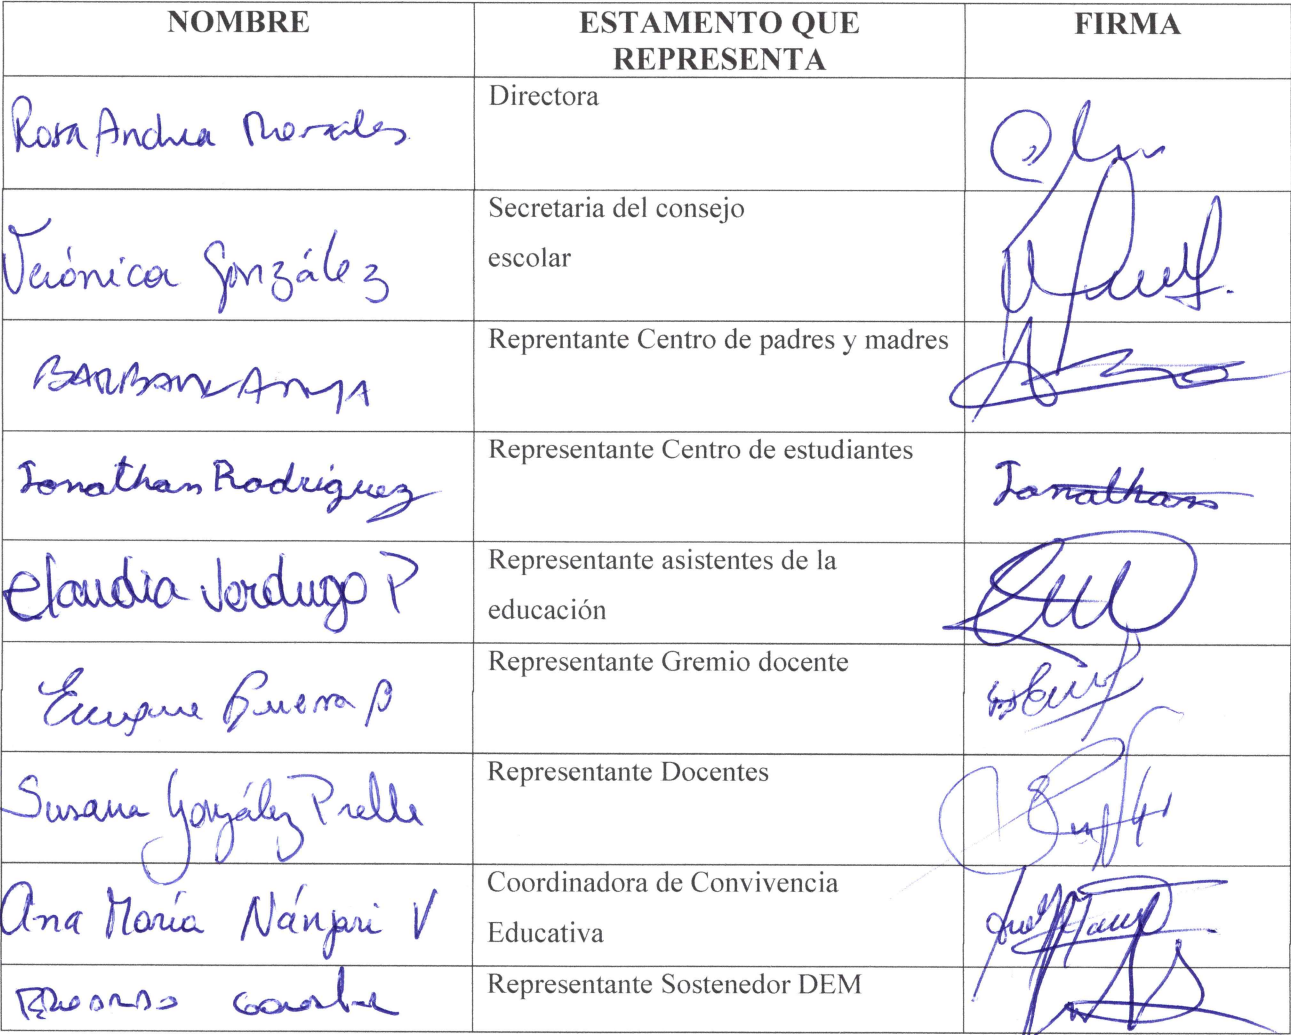 NOMBRE
ESTAMENTO QUE
REPRESENTA
FIRMA
Rosa Andrea Morales
Directora
Verónica González
Secretaria del consejo
escolar
Reprentante Centro de padres y madres
Jonathan Rodriguez
Representante Centro de estudiantes
Jonathan
Claudia Verdugo P
Representante asistentes de la
educación
Enrique Guerra
Representante Gremio docente
Susana González Prelle
Representante Docentes
Ana María Nánjari V
Coordinadora de Convivencia
Educativa
Representante Sostenedor DEM